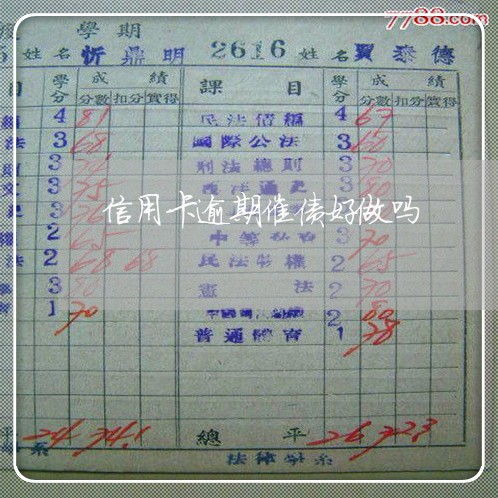 7788.com
學期
姓名 忻鼎明 2616 姓名 賈泰德
目 學分 成績 課目 學分 成績
分數 扣分 實得 分數 扣分 實得
4 81 民法債編 4 67
法 3 68 國際公法 3 60
3 刑法總則 3 70
3 75 3
信用卡逾期催债好做吗
2 65 3 70
法 2 68 68 民法物權 2 65
3 80 憲法 2 70
1 70 2 80
普通體育 1 78
平 24 74.1 總平 26 72.3
系 法律學系